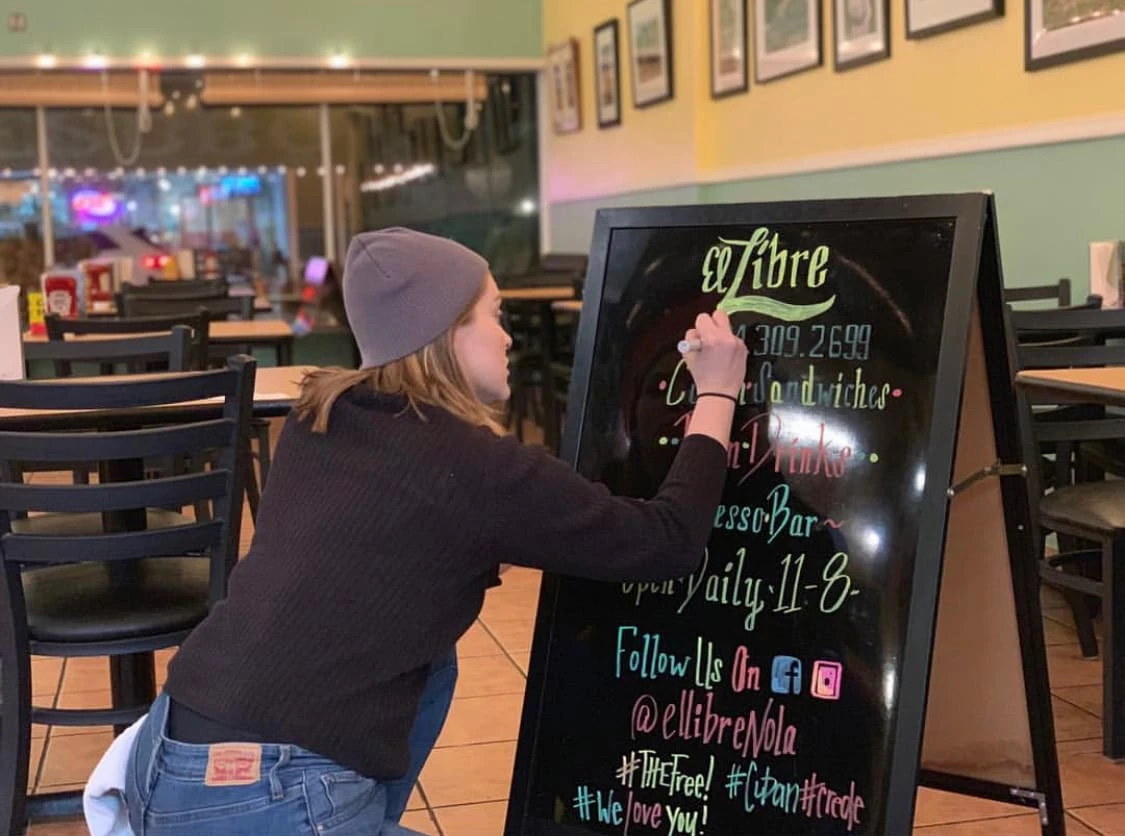 El Libre
309.2699
Sandwiches
Drinks
Bar~
Open Daily 11-8
Follow Us On f
@ellibreNola
#THEFree! #Cuban #creole
#We love you!